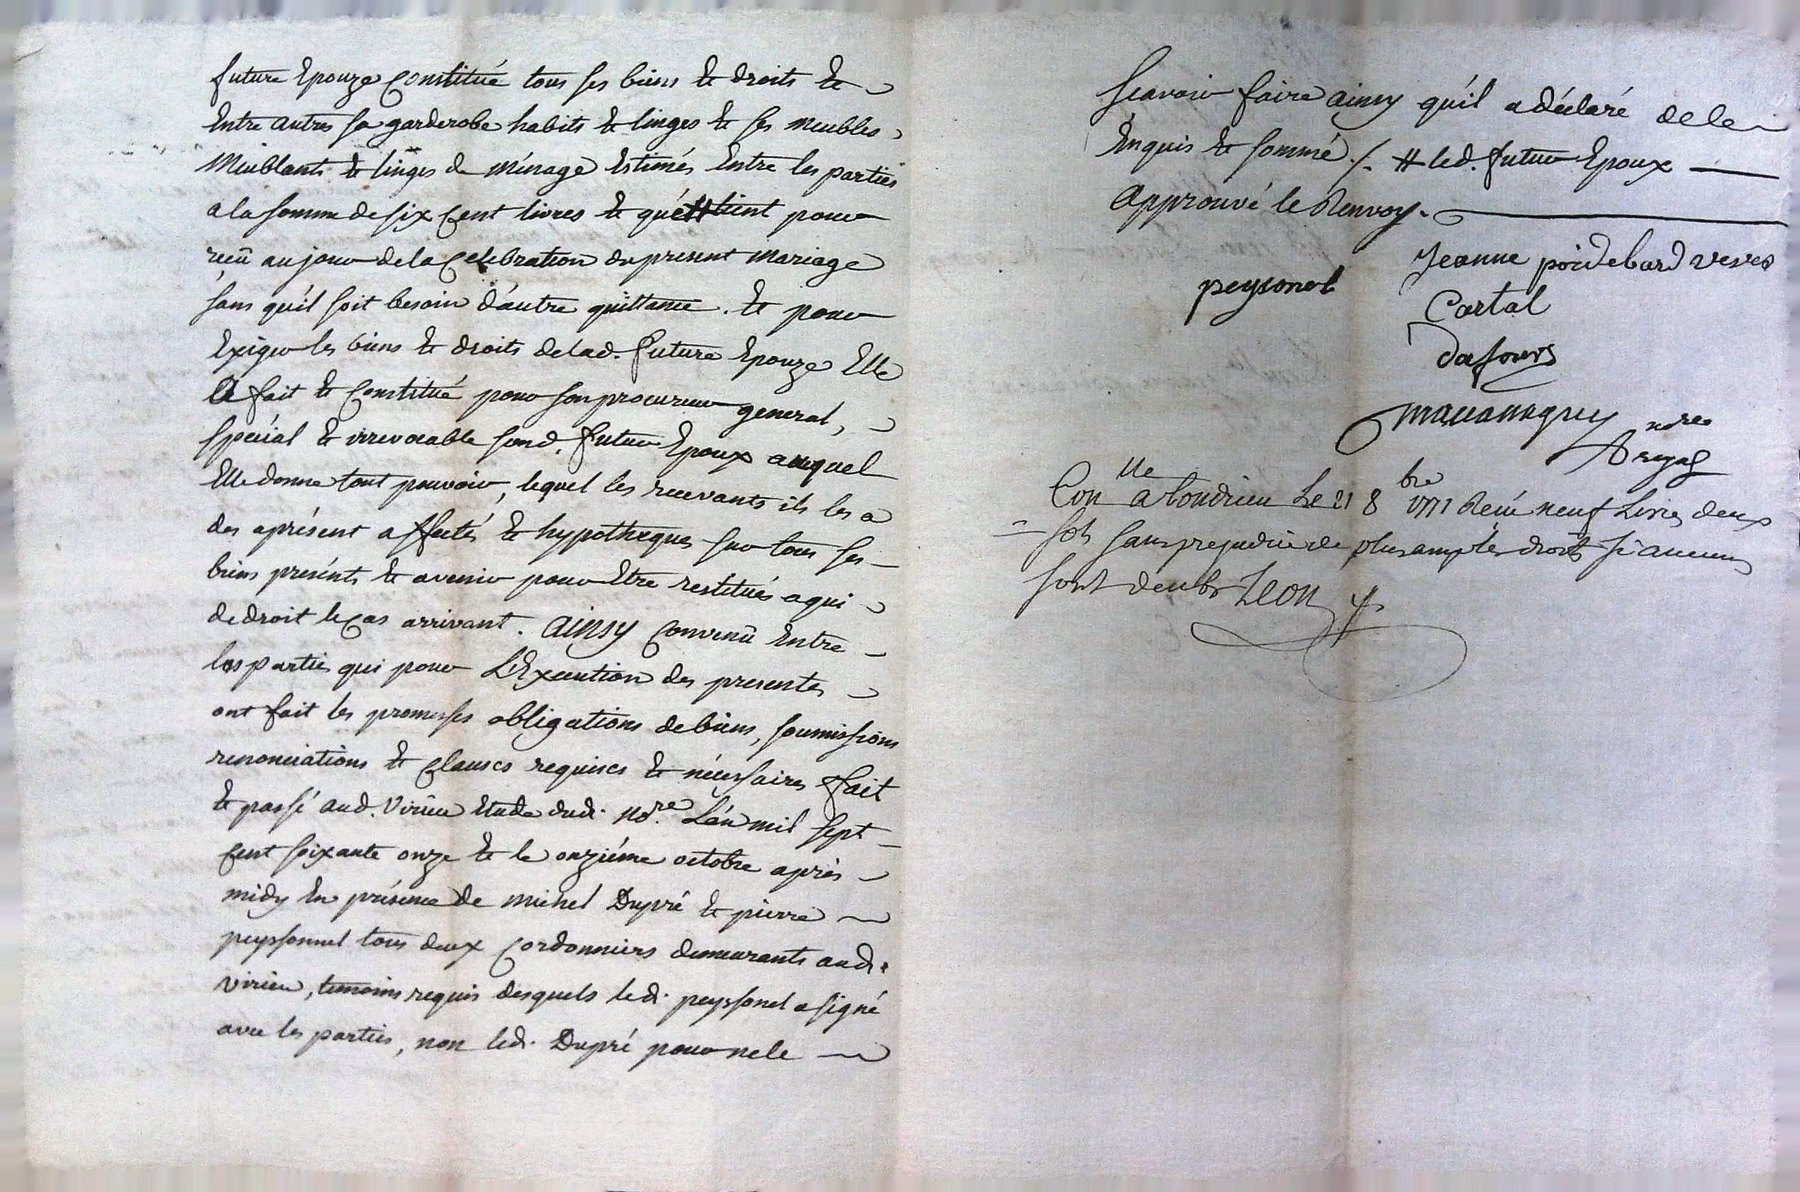 future Epouze Constitué tous ses biens & droits &
Entre autres sa garderobe habits & linges & ses meubles
Meublants & linges de ménage Estimés Entre les parties
a la somme de six cent livres & que # tient pour
reçû au jour de la Celebration du present mariage
sans qu'il soit besoin d'autre quittance. & pour
Exiger les biens & droits de lad. future Epouze Elle
a fait & Constitué pour son procureur general,
spécial & irrevocable sond. futur Epoux auquel
Elle donne tout pouvoir, lequel les recevants ils les a
des aprésent affectés & hypotheques sur tous ses
biens présents & avenir pour Etre restitués a qui
de droit le cas arrivant. Ainsy Convenû Entre
les parties qui pour L'Execution des presentes
ont fait les promesses obligations de biens, soumissions
renonciations & clauses requises & nécessaires fait
& passé aud. Virieu Etude dud. no.re L'an mil sept
cent soixante onze & le onziéme octobre après
midy En présence de michel Dupré & pierre
peyssonnel tous deux Cordonniers demeurants aud.
virieu, temoins requis desquels led. peyssonel a signé
avec les parties, non led. Dupré pour ne le
scavoir faire ainsy qu'il a déclaré de ce
Enquis & sommé ./. # led. futur Epoux
Approuvé le Renvoy.
Jeanne poidebard veuve
peysonel
Cartal
nore
Con lle a Condrieu Le 21 8 bre 1771 Reçu neuf Livres deux
sols sans prejudice de plus amples droits si aucuns
sont deubs Leon